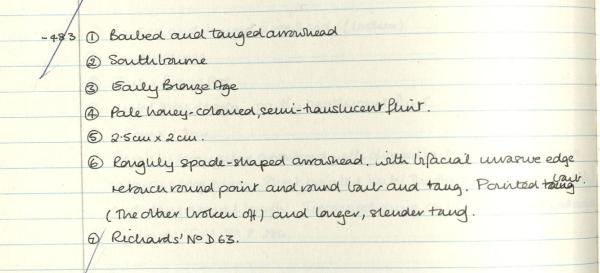 -483 ① Barbed and tanged arrowhead
② Southbourne
③ Early Bronze Age
④ Pale honey-coloured, semi-translucent flint.
⑤ 2.5cm x 2cm.
⑥ Roughly spade-shaped arrowhead. with bifacial invasive edge
retouch round point and round barb and tang. Pointed barb.
(The other broken off) and longer, slender tang.
⑦ Richards' No D 63.